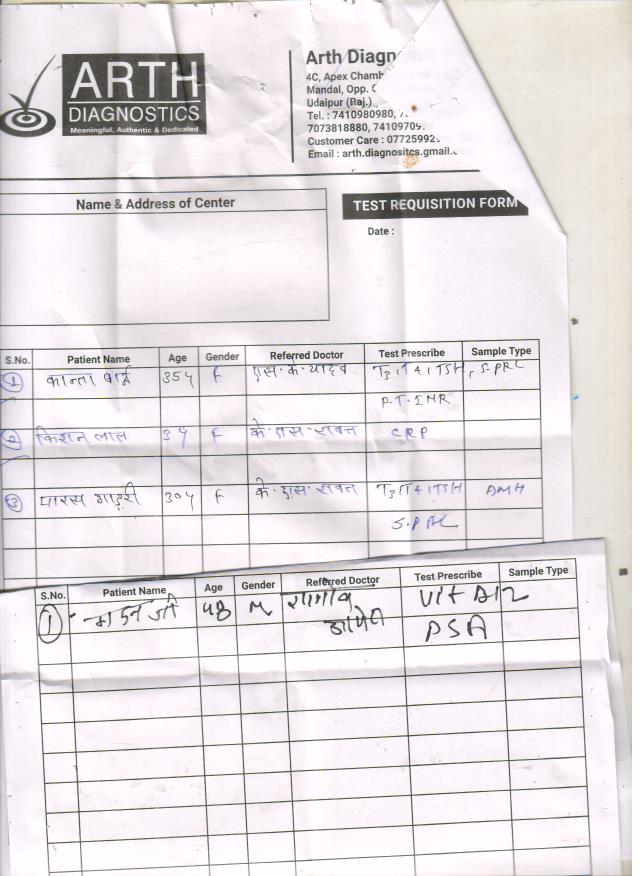 ARTH
DIAGNOSTICS
Meaningful, Authentic & Dedicated
Arth Diagn
4C, Apex Chamb
Mandal, Opp. C
Udaipur (Raj.)
Tel. : 7410980980,
7073818880, 74109709
Customer Care : 07725992
Email : arth.diagnositcs.gmail.c
Name & Address of Center
TEST REQUISITION FORM
Date :
S.No. Patient Name Age Gender Referred Doctor Test Prescribe Sample Type
1 कान्ता बाई 35Y F एस.के.यादव T3,T4,TSH, S.PRL
P.T.INR
2 किशन लाल 3Y F के.एस.रावत CRP
3 पारस गाडरी 30Y F के.एस.रावत T3,T4,TSH AMH
S.PRL
S.No. Patient Name Age Gender Referred Doctor Test Prescribe Sample Type
1 जी M Vit B12
PSA